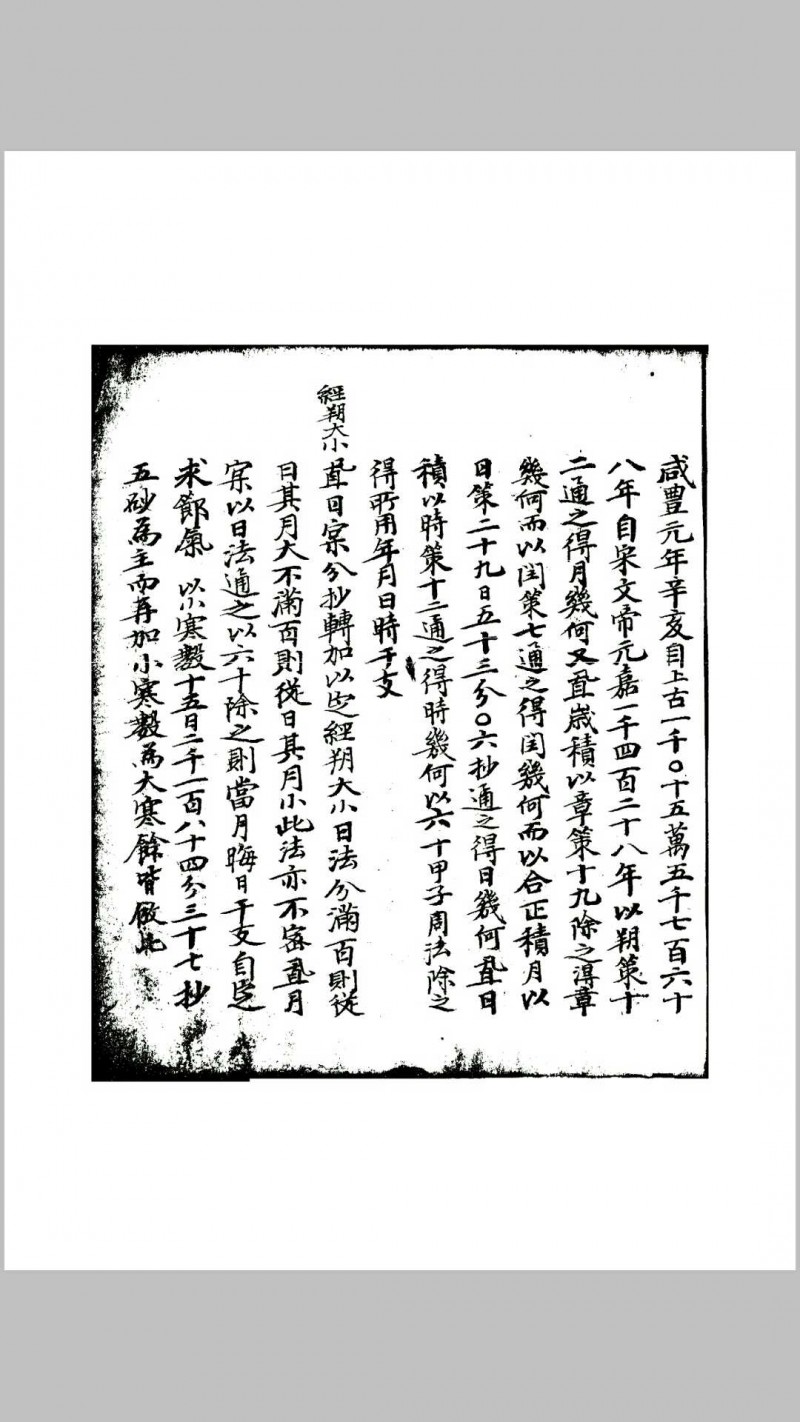 咸豊元年辛亥自上古一千〇十五萬五千七百六十
八年自宋文帝元嘉一千四百二十八年以朔策十
二通之得月幾何又置歲積以章策十九除之得章
幾何而以閏策七通之得閏幾何而以合正積月以
日策二十九日五十三分〇六抄通之得日幾何置日
積以時策十二通之得時幾何以六十甲子周法除之
得所用年月日時干支
經朔大小
置日㝎分抄轉加以㝎經朔大小日法分滿百則從
日其月大不滿百則從日其月小此法亦不密置月
㝎以日法通之以六十除之則當月晦日干支自㝎
求節氣 以小寒數十五日二千一百八十四分三十七抄
五砂為主而再加小寒數為大寒餘皆倣此